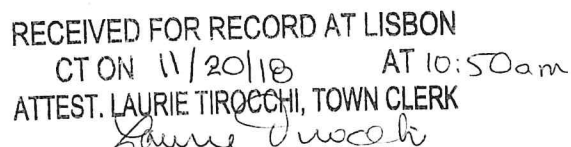 RECEIVED FOR RECORD AT LISBON
CT ON 11/20/18 AT 10:50am
ATTEST. LAURIE TIROCCHI, TOWN CLERK
Laurie Tirocchi